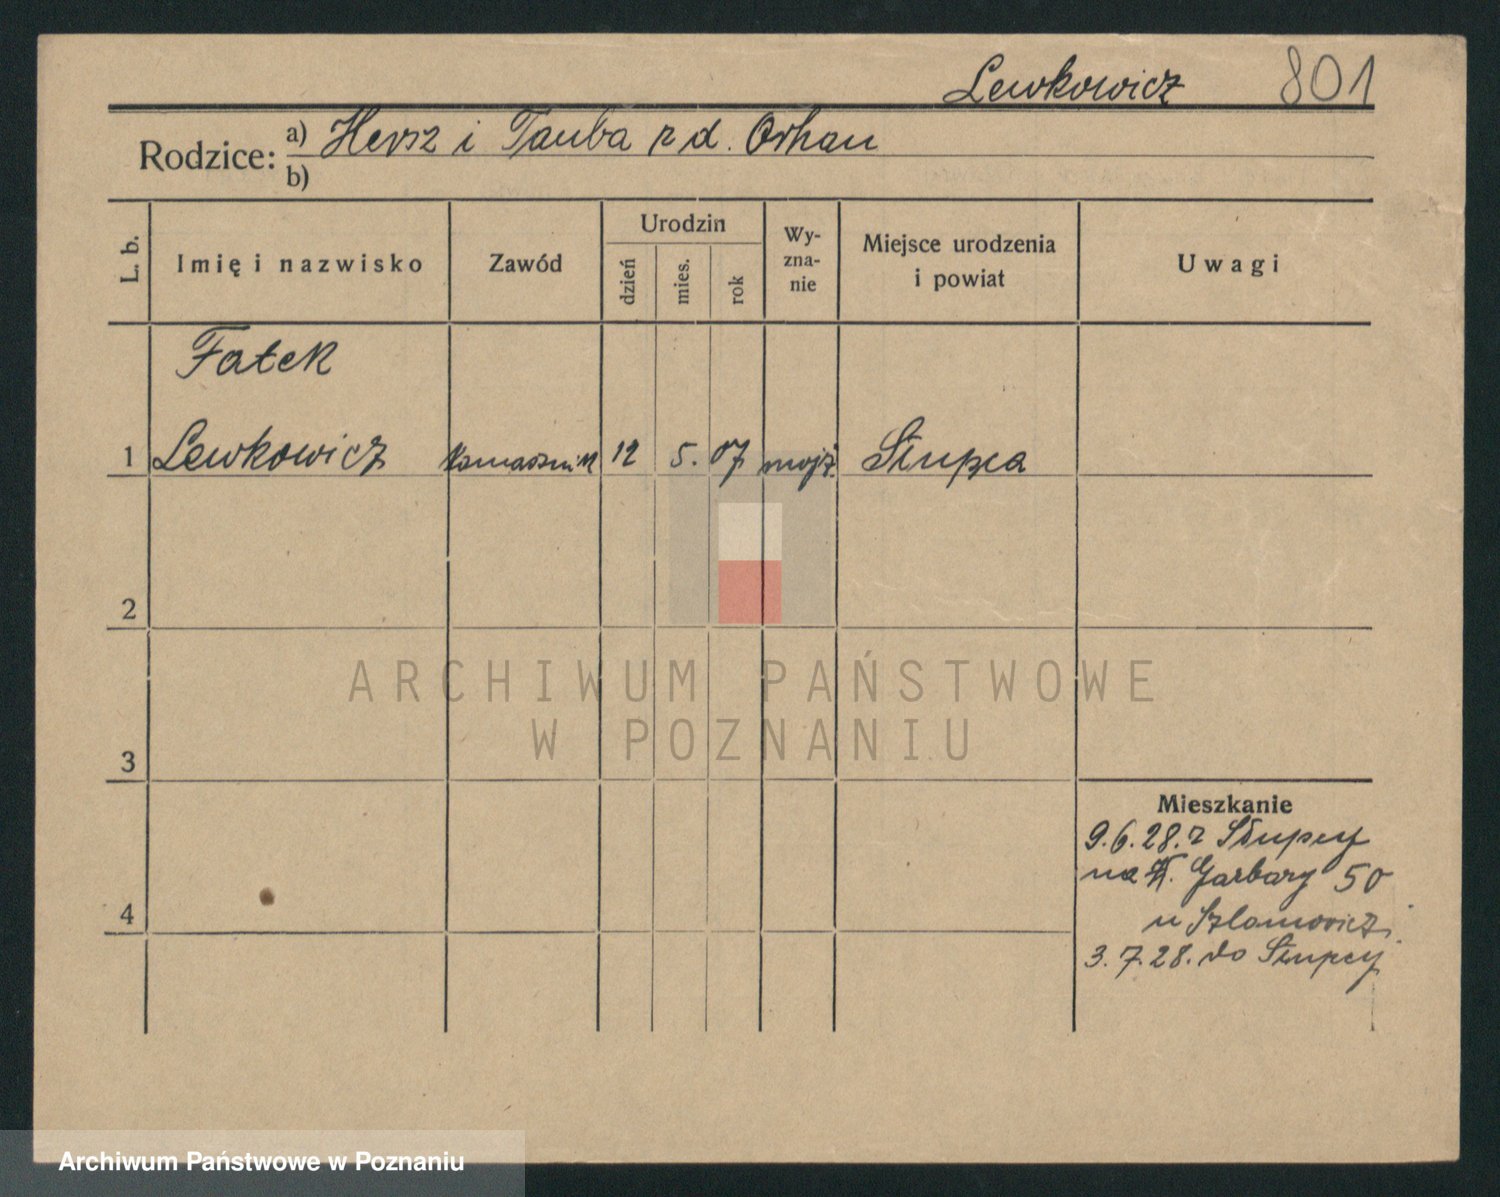 Lewkowicz 801
Rodzice: a) Hersz i Tauba z d. Orhan
b)
L. b.
Imię i nazwisko
Zawód
Urodzin
dzień
mies.
rok
Wy-
zna-
nie
Miejsce urodzenia
i powiat
Uwagi
Fałek
1 Lewkowicz kamasznik 12 5. 07 mojż. Słupca
2
3
4
Mieszkanie
9.6.28. z Słupcy
na W. Garbary 50
u Szlamowicz
3.7.28. do Słupcy
ARCHIWUM PAŃSTWOWE
W POZNANIU
Archiwum Państwowe w Poznaniu